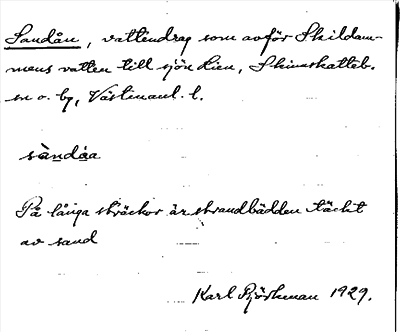 Sandån, vattendrag som avför Skildam-
mens vatten till sjön Lien, Skinnskatteb.
sn o. by, Västmanl. l.
sàndåa
På långa sträckor är strandbädden täckt
av sand
Karl Björkman 1929.